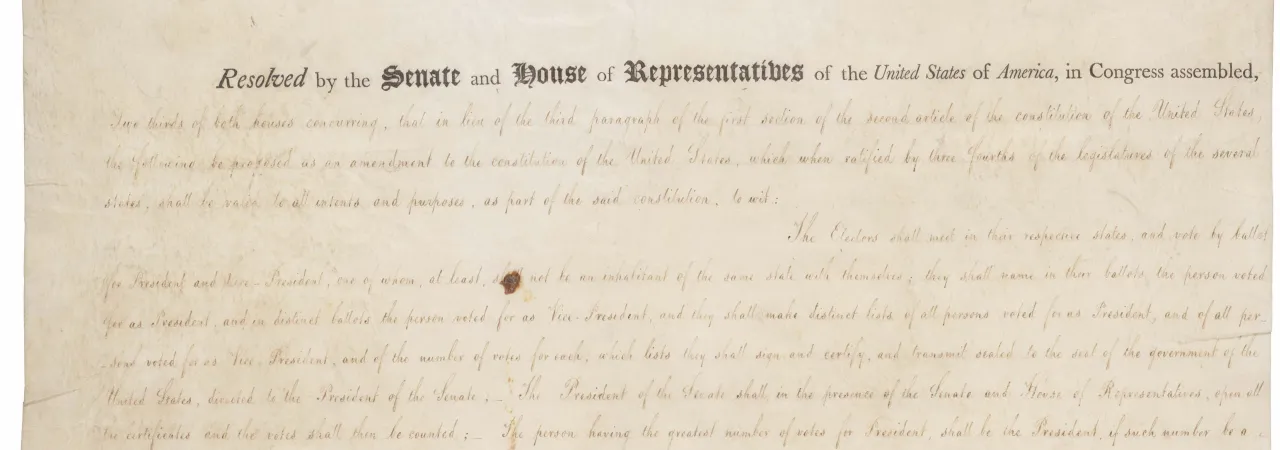 Resolved by the Senate and House of Representatives of the United States of America, in Congress assembled,
Two thirds of both houses concurring, that in lieu of the third paragraph of the first section of the second article of the constitution of the United States,
the following be proposed as an amendment to the constitution of the United States, which when ratified by three fourths of the legislatures of the several
states, shall be valid to all intents and purposes, as part of the said constitution, to wit:
The Electors shall meet in their respective states, and vote by ballot
for President and Vice-President, one of whom, at least, shall not be an inhabitant of the same state with themselves; they shall name in their ballots, the person voted
for as President, and in distinct ballots the person voted for as Vice-President, and they shall make distinct lists of all persons voted for as President, and of all per-
sons voted for as Vice-President, and of the number of votes for each, which lists they shall sign and certify, and transmit sealed to the seat of the government of the
United States, directed to the President of the Senate;— The President of the Senate shall, in the presence of the Senate and House of Representatives, open all
the certificates and the votes shall then be counted;— The person having the greatest number of votes for President, shall be the President, if such number be a